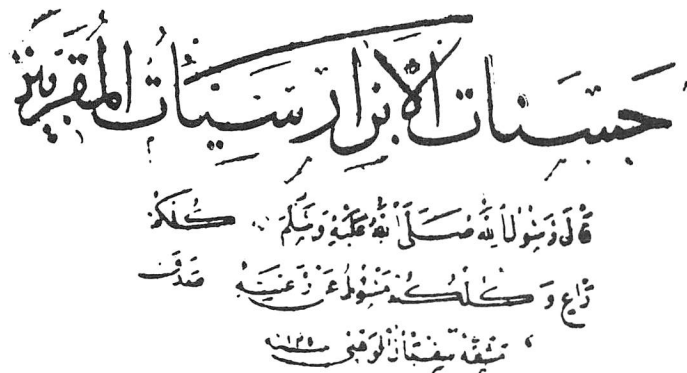 حسنات الأبرار سيئات المقربين
قال رسول الله صلى الله عليه وسلم كلكم
راع و كلكم مسئول عن رعيته صدق
مشقه